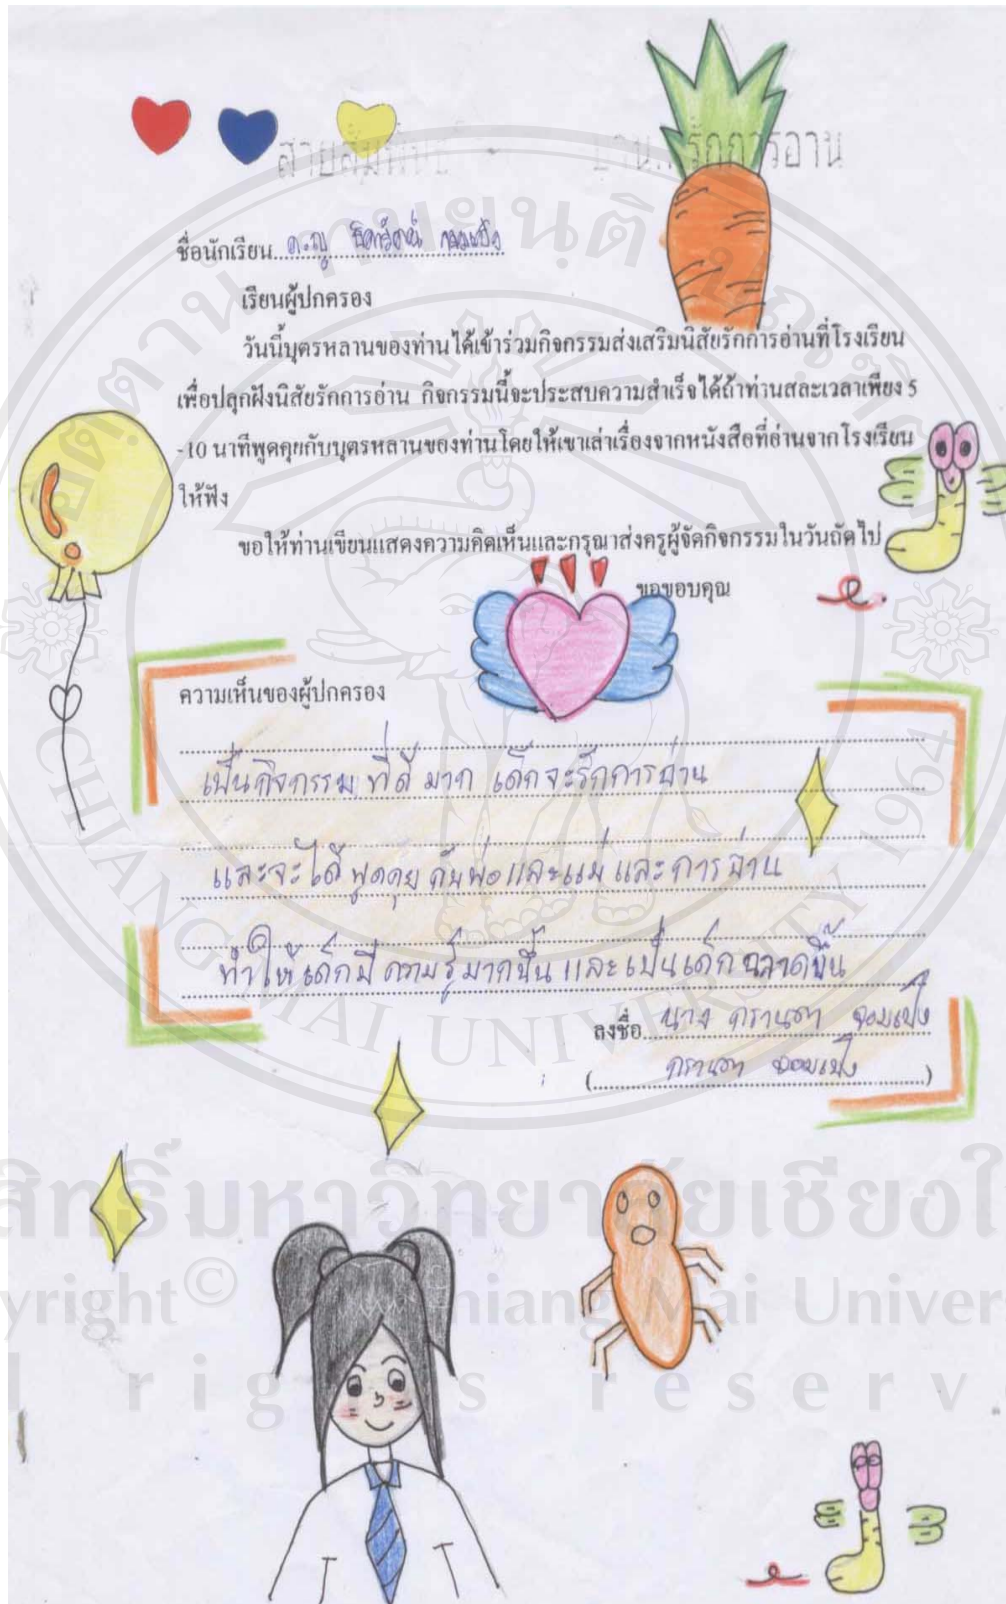 สายสัมพันธ์ บ้าน..รักการอ่าน
ชื่อนักเรียน ด.ญ
เรียนผู้ปกครอง
วันนี้บุตรหลานของท่านได้เข้าร่วมกิจกรรมส่งเสริมนิสัยรักการอ่านที่โรงเรียน
เพื่อปลุกฝังนิสัยรักการอ่าน กิจกรรมนี้จะประสบความสำเร็จได้ถ้าท่านสละเวลาเพียง 5
-10 นาทีพูดคุยกับบุตรหลานของท่านโดยให้เขาเล่าเรื่องจากหนังสือที่อ่านจากโรงเรียน
ให้ฟัง
ขอให้ท่านเขียนแสดงความคิดเห็นและกรุณาส่งครูผู้จัดกิจกรรมในวันถัดไป
ขอขอบคุณ
ความเห็นของผู้ปกครอง
เป็นกิจกรรม ที่ดี มาก เด็กจะรักการอ่าน
และจะได้ พูดคุย กับพ่อและแม่ และ การอ่าน
ทำให้เด็กมี ความรู้มากขึ้น และเป็นเด็กฉลาดขึ้น
ลงชื่อ นาง กรานดา จอมแป้ง
(กรานดา จอมแป้ง)
CHIANG MAI UNIVERSITY 1964
สิทธิ์มหาวิทยาลัยเชียงใ
yright© Chiang Mai Univer
l rights reserv